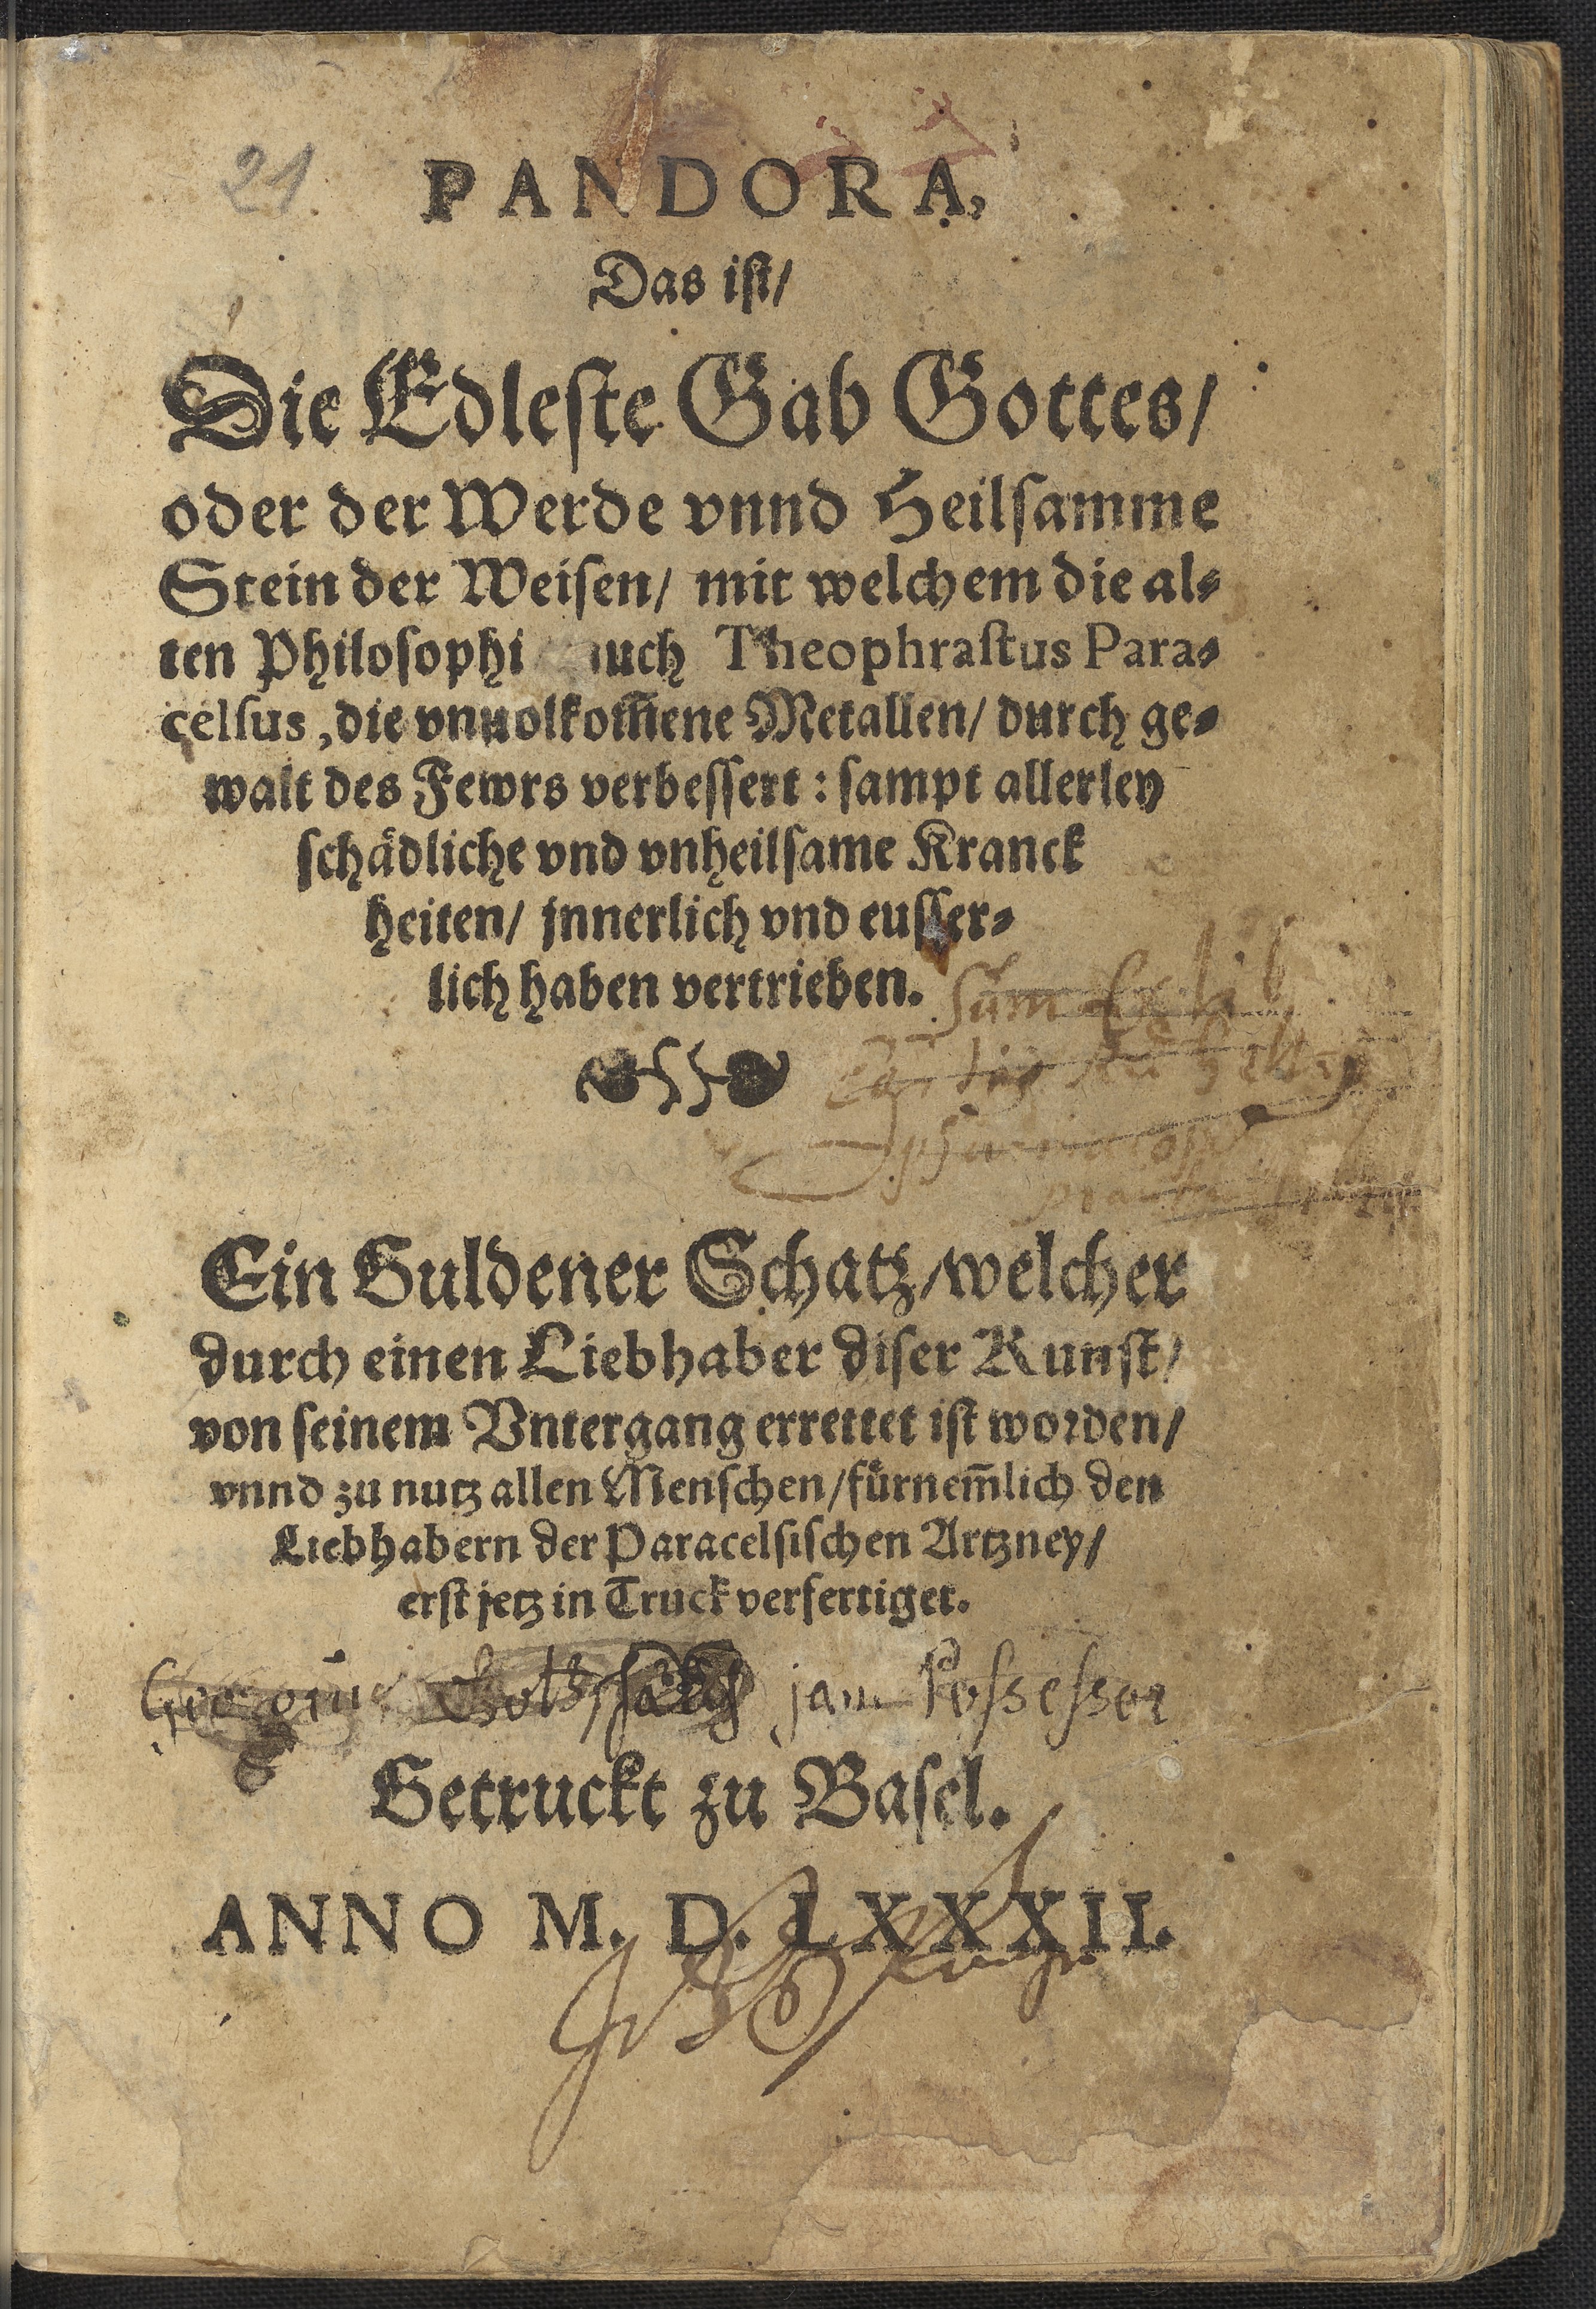 21
PANDORA,
Das iſt/
Die Edleſte Gab Gottes/
oder der Werde vnnd Heilſamme
Stein der Weiſen/ mit welchem die al⸗
ten Philoſophi auch Theophraſtus Para⸗
celſus, die vnuolkom̃ene Metallen/ durch ge⸗
walt des Fewrs verbeſſert: ſampt allerley
ſchädliche vnd vnheilſame Kranck
heiten/ jnnerlich vnd euſſer⸗
lich haben vertrieben.
Sum Ex lib
Ein Guldener Schatz/welcher
durch einen Liebhaber diſer Kunſt/
von ſeinem Vntergang errettet iſt worden/
vnnd zu nutz allen Menſchen/fürnem̃lich den
Liebhabern der Paracelſiſchen Artzney/
erſt jetz in Truck verfertiget.
jam Poſseſsor
Getruckt zu Baſel.
ANNO M. D. LXXXII.